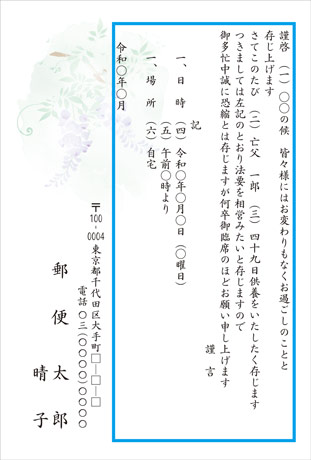 謹啓 (一) 〇〇の候 皆々様にはお変わりもなくお過ごしのことと
存じ上げます
さてこのたび (二) 亡父 一郎 (三) 四十九日供養をいたしたく存じます
つきましては左記のとおり法要を相営みたいと存じますので
御多忙中誠に恐縮とは存じますが何卒御臨席のほどお願い申し上げます
謹言
記
一、日 時 (四) 令和〇年〇月〇日 (〇曜日)
(五) 午前〇時より
一、場 所 (六) 自宅
令和〇年〇月
〒100-0004 東京都千代田区大手町□-□-□
電話 〇三(〇〇〇〇)〇〇〇〇
郵便 太郎
晴子